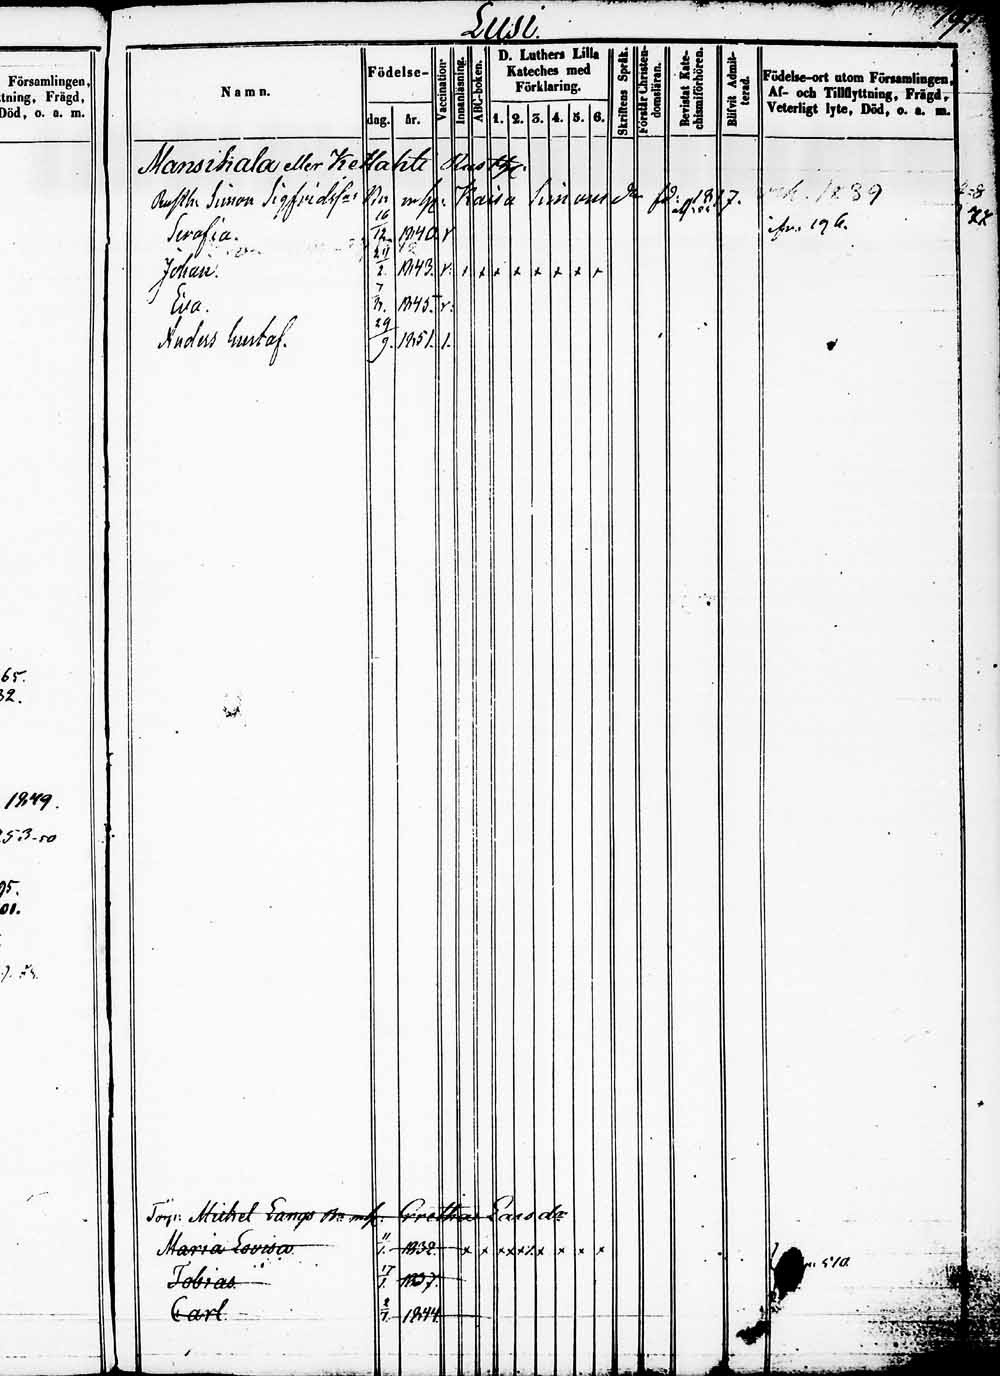 Lusi.
191.
Församlingen,
tning, Frägd,
Död, o. a. m.
Namn.
Födelse-
dag.
år.
Vaccination
Innanläsning.
ABC-boken.
D. Luthers Lilla
Kateches med
Förklaring.
1. 2. 3. 4. 5. 6.
Skriftens Språk.
Förstår Christen-
domsläran.
Bevistat Kate-
chismiförhören.
Blifvit Admit-
terad.
Födelse-ort utom Församlingen,
Af- och Tillflyttning, Frägd,
Veterligt lyte, Död, o. a. m.
Mansikala eller Ketlahti Rusth.
Rusth. Simon Sigfridss: Bn m. h: Kaisa Simons dr fd: 1817. 1839
Serafia. 16/12. 1840. v
fr. 196.
Johan. 24/2. 1843. v: x x x x x x x x
Eva. 7/3. 1845. v:
Anders Gustaf. 29/9. 1851. 1.
65.
32.
1849.
253-50
95.
01.
Torp: Michel Langs Bn m h: Gretha Lars dr
Maria Lovisa 11/1. 1832 x x x x x x x x x
510
Tobias. 17/1. 1837.
Carl 2/7. 1844